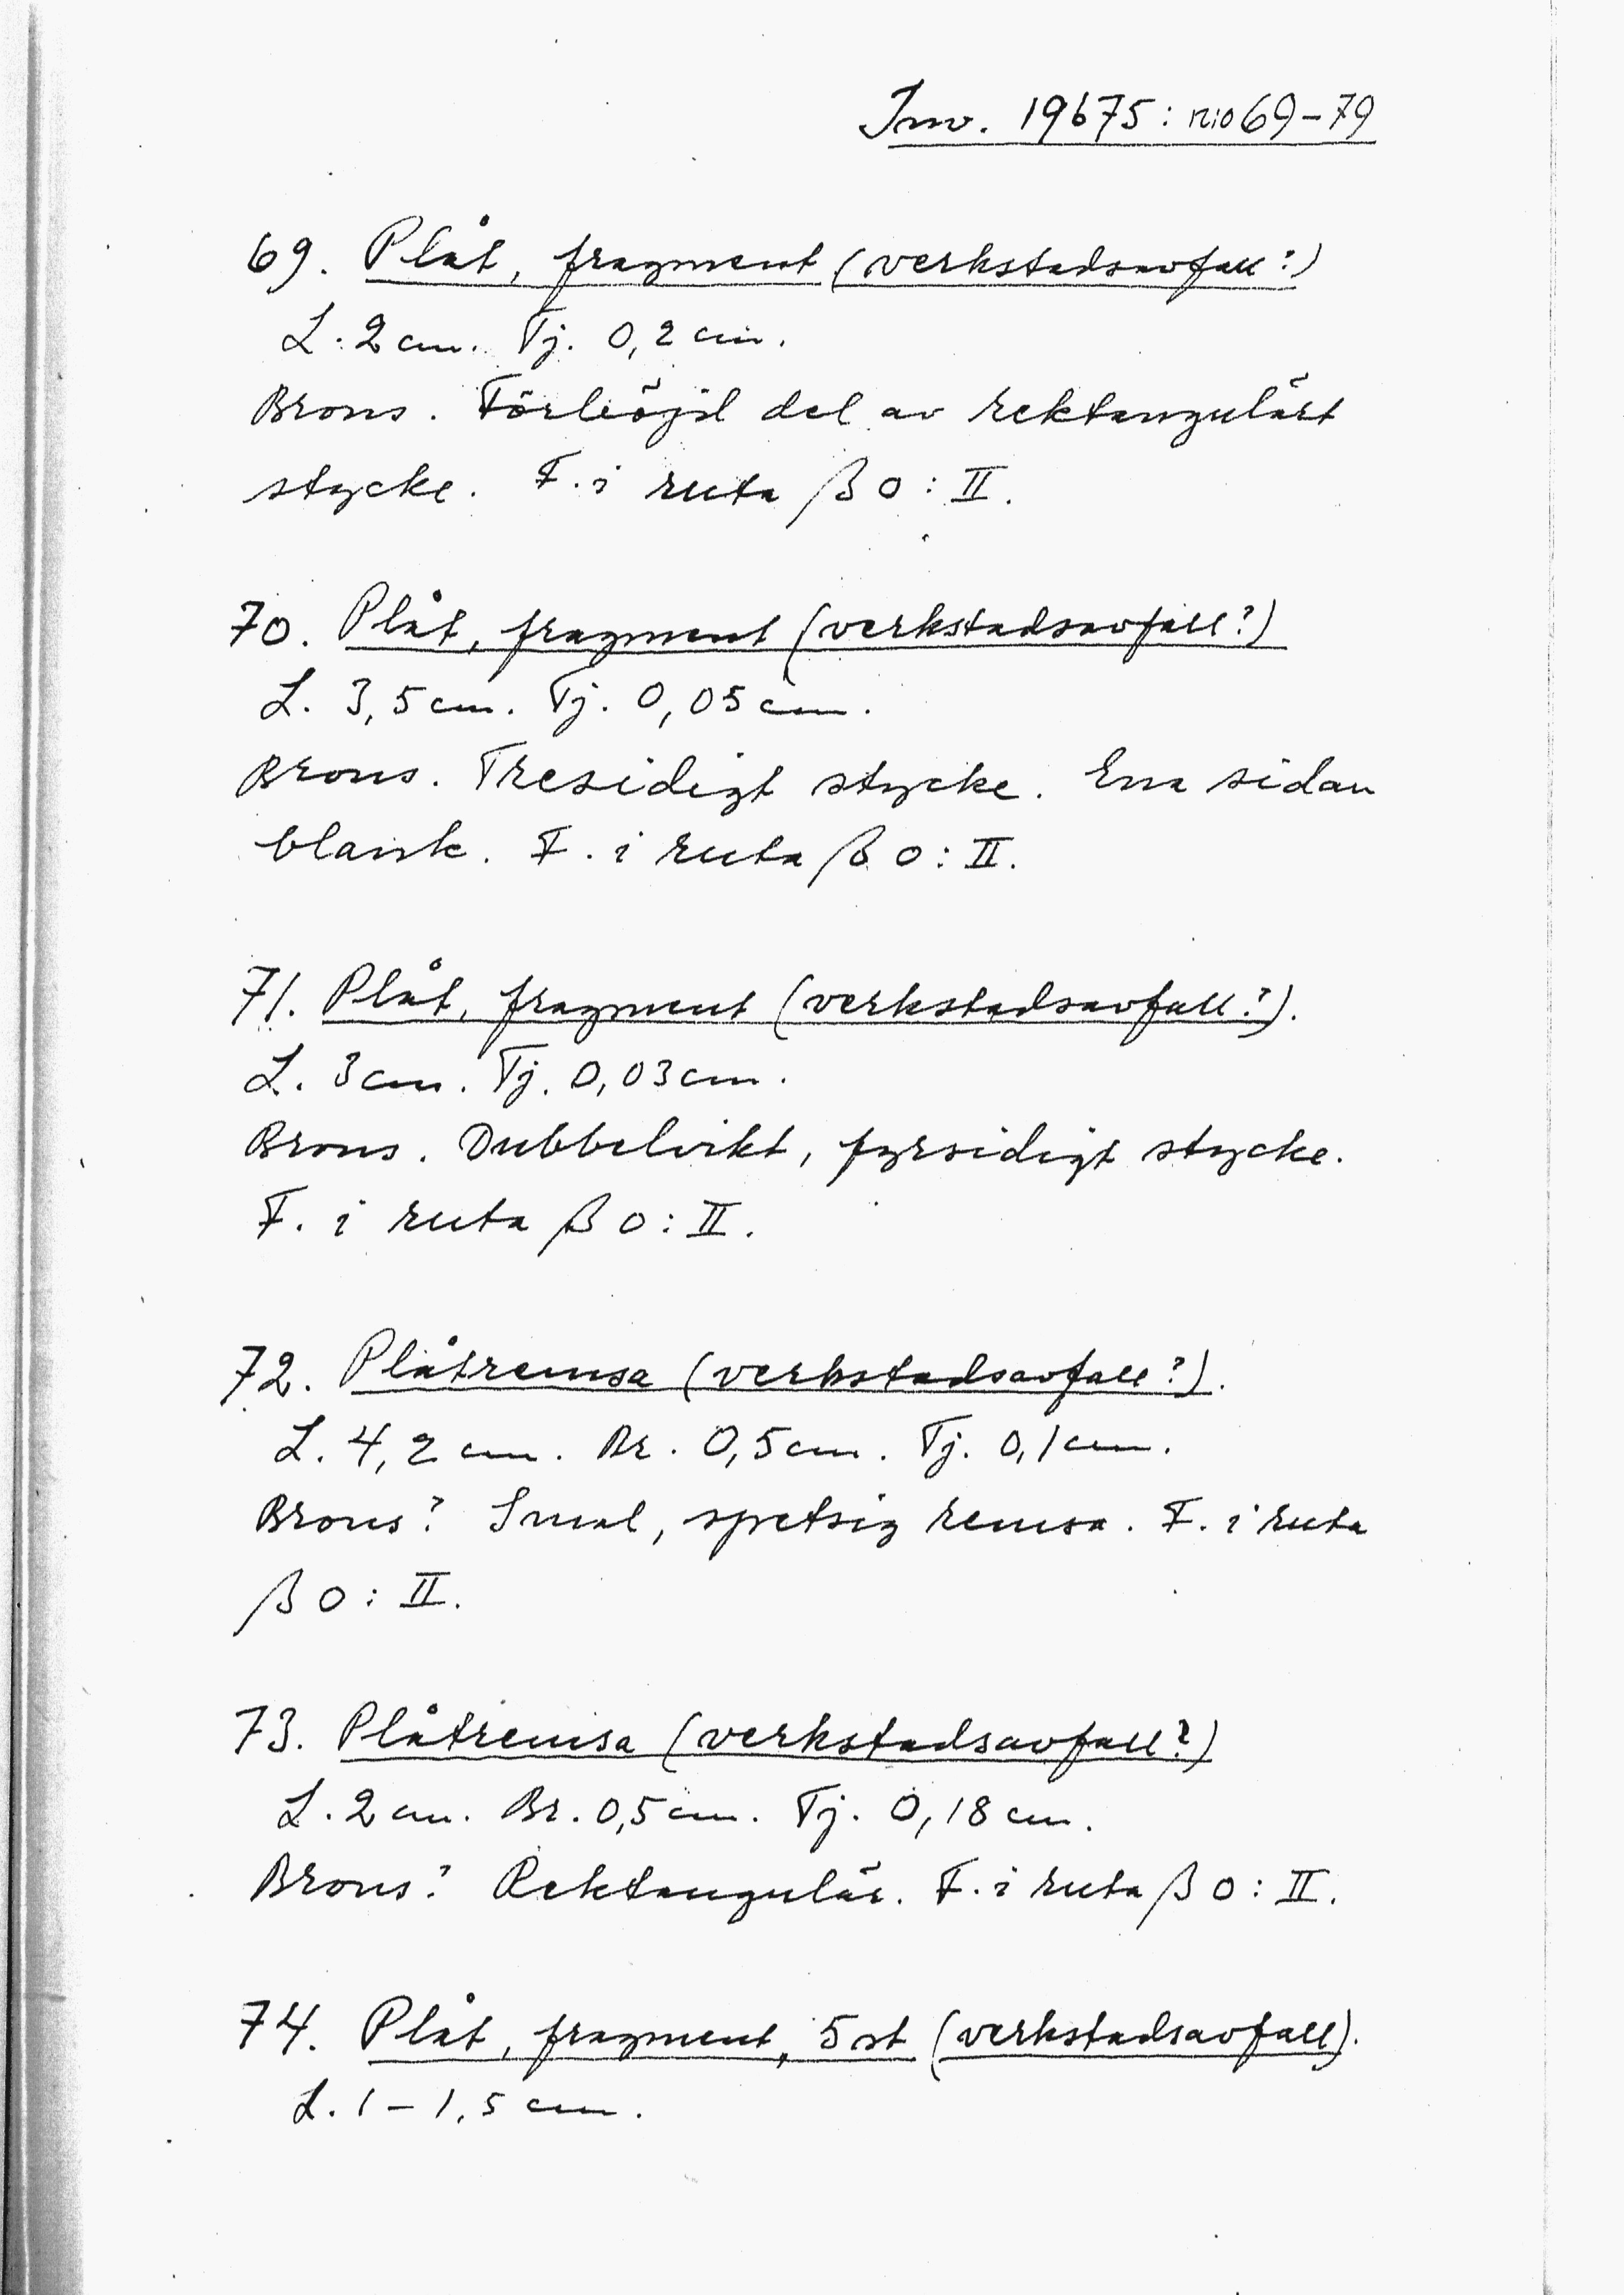 Inv. 19675: nio 69-79
69. Plåt, fragment (verkstadsavfall?)
L. 2 cm. Tj. 0,2 cm.
Brons. Förböjd del av rektangulärt
stycke. F. i ruta β 0 : II.
70. Plåt, fragment (verkstadsavfall?)
L. 3,5 cm. Tj. 0,05 cm.
Brons. Tresidigt stycke. Ena sidan
blank. F. i ruta β 0 : II.
71. Plåt, fragment (verkstadsavfall?).
L. 3 cm. Tj. 0,03 cm.
Brons. Dubbelvikt, fyrsidigt stycke.
F. i ruta β 0 : II.
72. Plåtremsa (verkstadsavfall?).
L. 4,2 cm. Br. 0,5 cm. Tj. 0,1 cm.
Brons? Smal, spetsig remsa. F. i ruta
β 0 : II.
73. Plåtremsa (verkstadsavfall?)
L. 2 cm. Br. 0,5 cm. Tj. 0,18 cm.
Brons? Rektangulär. F. i ruta β 0 : II.
74. Plåt, fragment, 5 st (verkstadsavfall).
L. 1 – 1,5 cm.